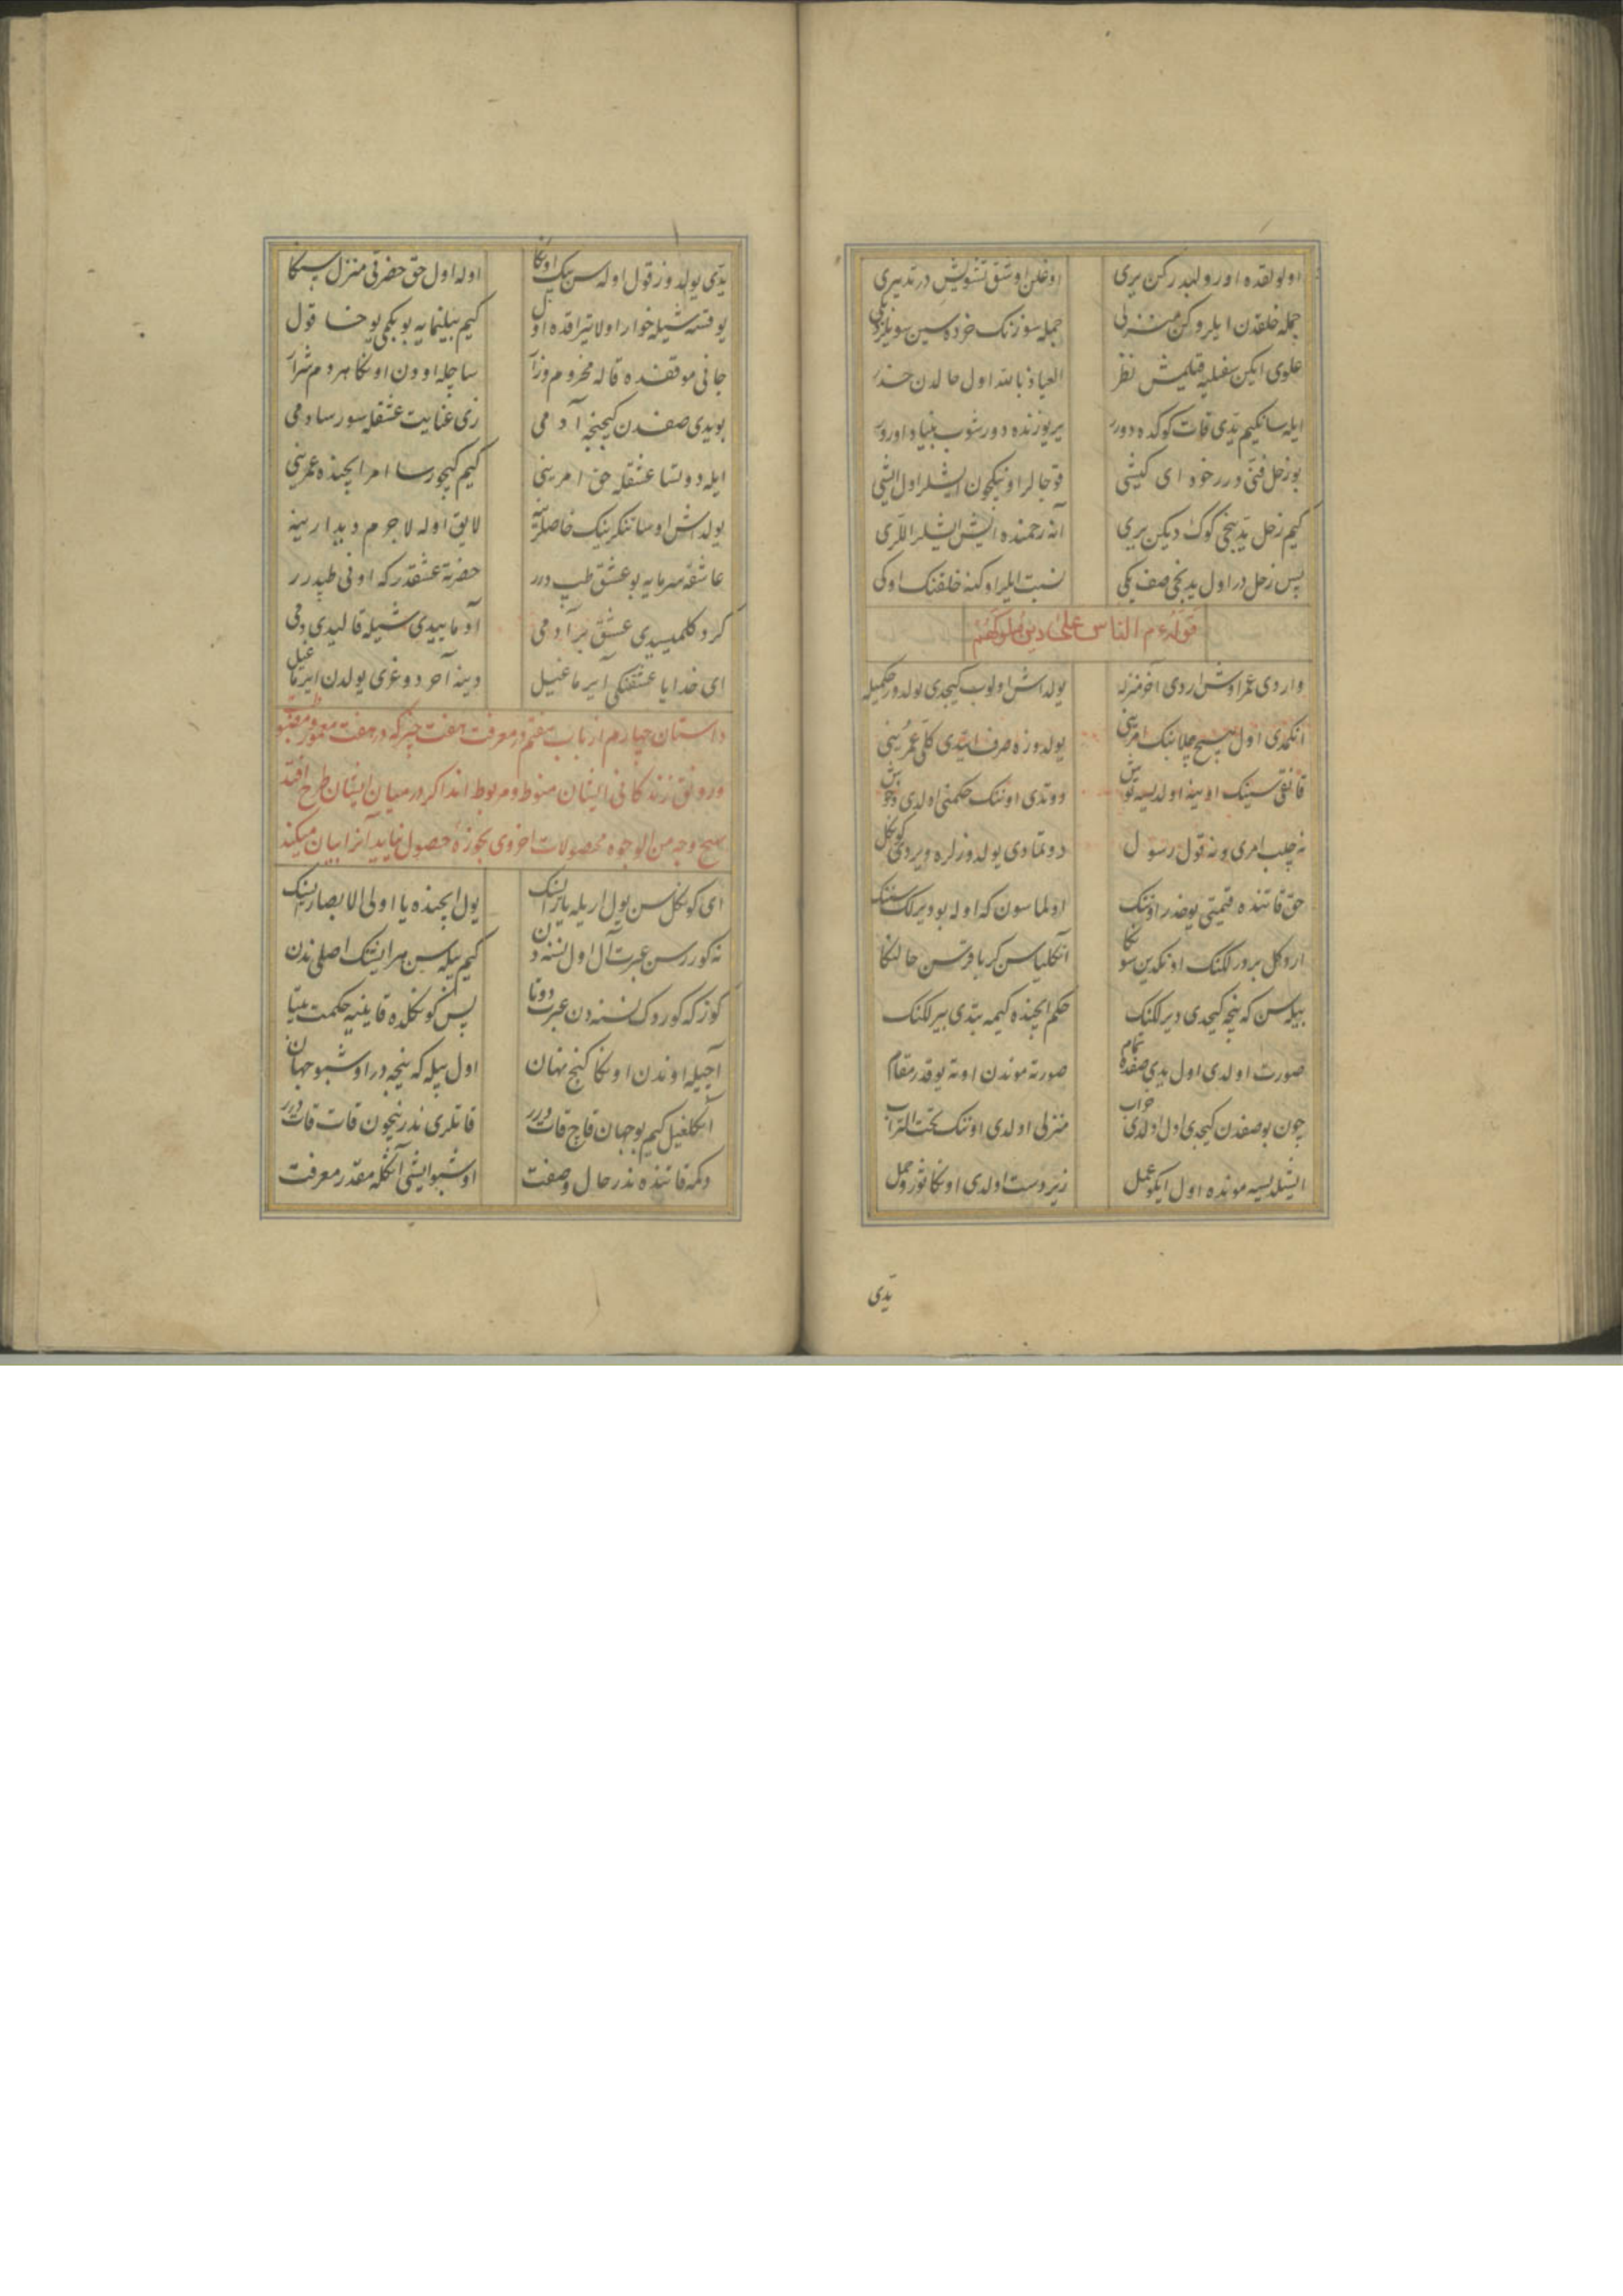 اولولقده اورولبدر کن یری اوغلن اوشق تشویش در تدبیری
جمله خلقدن ایلرو کن منزلی جمله سوزنک خرده سین سویلر دلی
علوی ایکن سفلیه قیلمیش نظر العیاذ بالله اول حالدن حذر
ایله سانکیم یدی قات کوکده دورر یر یوزنده دورشوب بنیاد اورور
بو زحل فنی درر خود ای کیشی قوجالر اونیکچون ایشلر اول ایشی
کیم زحل یدینجی کوک دیکن یری آنه رحمنده ایش ایشلر اللری
پس زحل در اول یدینجی صف یکی نسبت ایلر اوکنه خلقنک اوکی
قوله عم الناس علی دین ملوکهم
واردی عمر اوش اردی آخر منزله یولداش اولوب کیجدی یولدوز حکمیله
انکمدی اول هیچ چلابنک امرینی یولدوزه صرف ایتدی کلی عمرینی
قانقی سینک اوینه اولدیسه توش دوتدی اوننک حکمنی اولدی وحوش
نه چلب امری و نه قول رسول دوتمادی یولدوزلره ویردی کوکل
حق قاتنده قیمتی یوخدر اوننک اولماسون که اوله بو ویرلک سننک
ارو کل بو درلکنک اونکدین سونکا آنکلیاسن کر باقرسن حالنکا
بیله سن که نیجه کیجدی دیرلکنک حکم ایچنده کیمه یتدی بیرلکنک
صورت اولدی اول یدی صفده تمام صورته موندن اوته یوقدر مقام
چون بو صفدن کیجدی اول اولدی خراب منزلی اولدی اوننک تحت التراب
ایشلدیسه مونده اول ایکو عمل زیر دست اولدی اونکا ثور و حمل
یدی
یدی یولدوز قول اوله سن بیک اونکا اوله اول حق حضرتی منزل سنکا
یوقسه شیله خوار اولا تیراقده اول کیم بیلنمایه بو بکمی یوخسا قول
جانی موقفنده قاله محروم و زار ساچله اودن اونکا هر دم شرار
بویدی صفدن کیجیجه آدمی زی عنایت عشقله سورسا دمی
ایله دوتسا عشقله حق امرینی کیم کیجورسا امر ایچنده عمرینی
یولداش اوسا تنکرینک خاصلرینه لایق اوله لاجرم دیدارینه
عاشقه سرمایه بو عشق طپدرر حضرته عشقدر که اونی طپدرر
کر و کلمیسیدی عشق بر آدمی آدمابیدی شیله قالیدی دمی
ای خدایا عشقنکی آیرماغیل دینه آخر دوغری یولدن ایرماغیل
داستان چهارم از باب هفتم در معرفت هفت چیز که در هفت معمور مضبوط
و رونق زندکانی ایشان منوط و مربوط اند اکر در میان ایشان طرح افتد
هیچ وجه من الوجوه محصولات اخروی بحوزه حصول نیاید آنرا بیان میکند
ای کوکل سن یول اریله یار ایسنک یول ایچنده یا اولی الابصار ایسنک
نه کوررسن عبرت آل اول نسنه دن کیم بیله سن هر ایشنک اصلی ندن
کوز که کوردوک نسنه دن عبرت دوتا پس کونکلده قاینیه حکمت بیتا
آچیله اوندن اونکا کنج نهان اول بیله که نیجه در اوشبو جهان
آنکلغیل کیم بو جهان قاچ قات درر قاتلری ندر نیچون قات قات درر
دکمه قاتنده ندر حال و صفت اوشبو ایشی آنکله مقدر معرفت